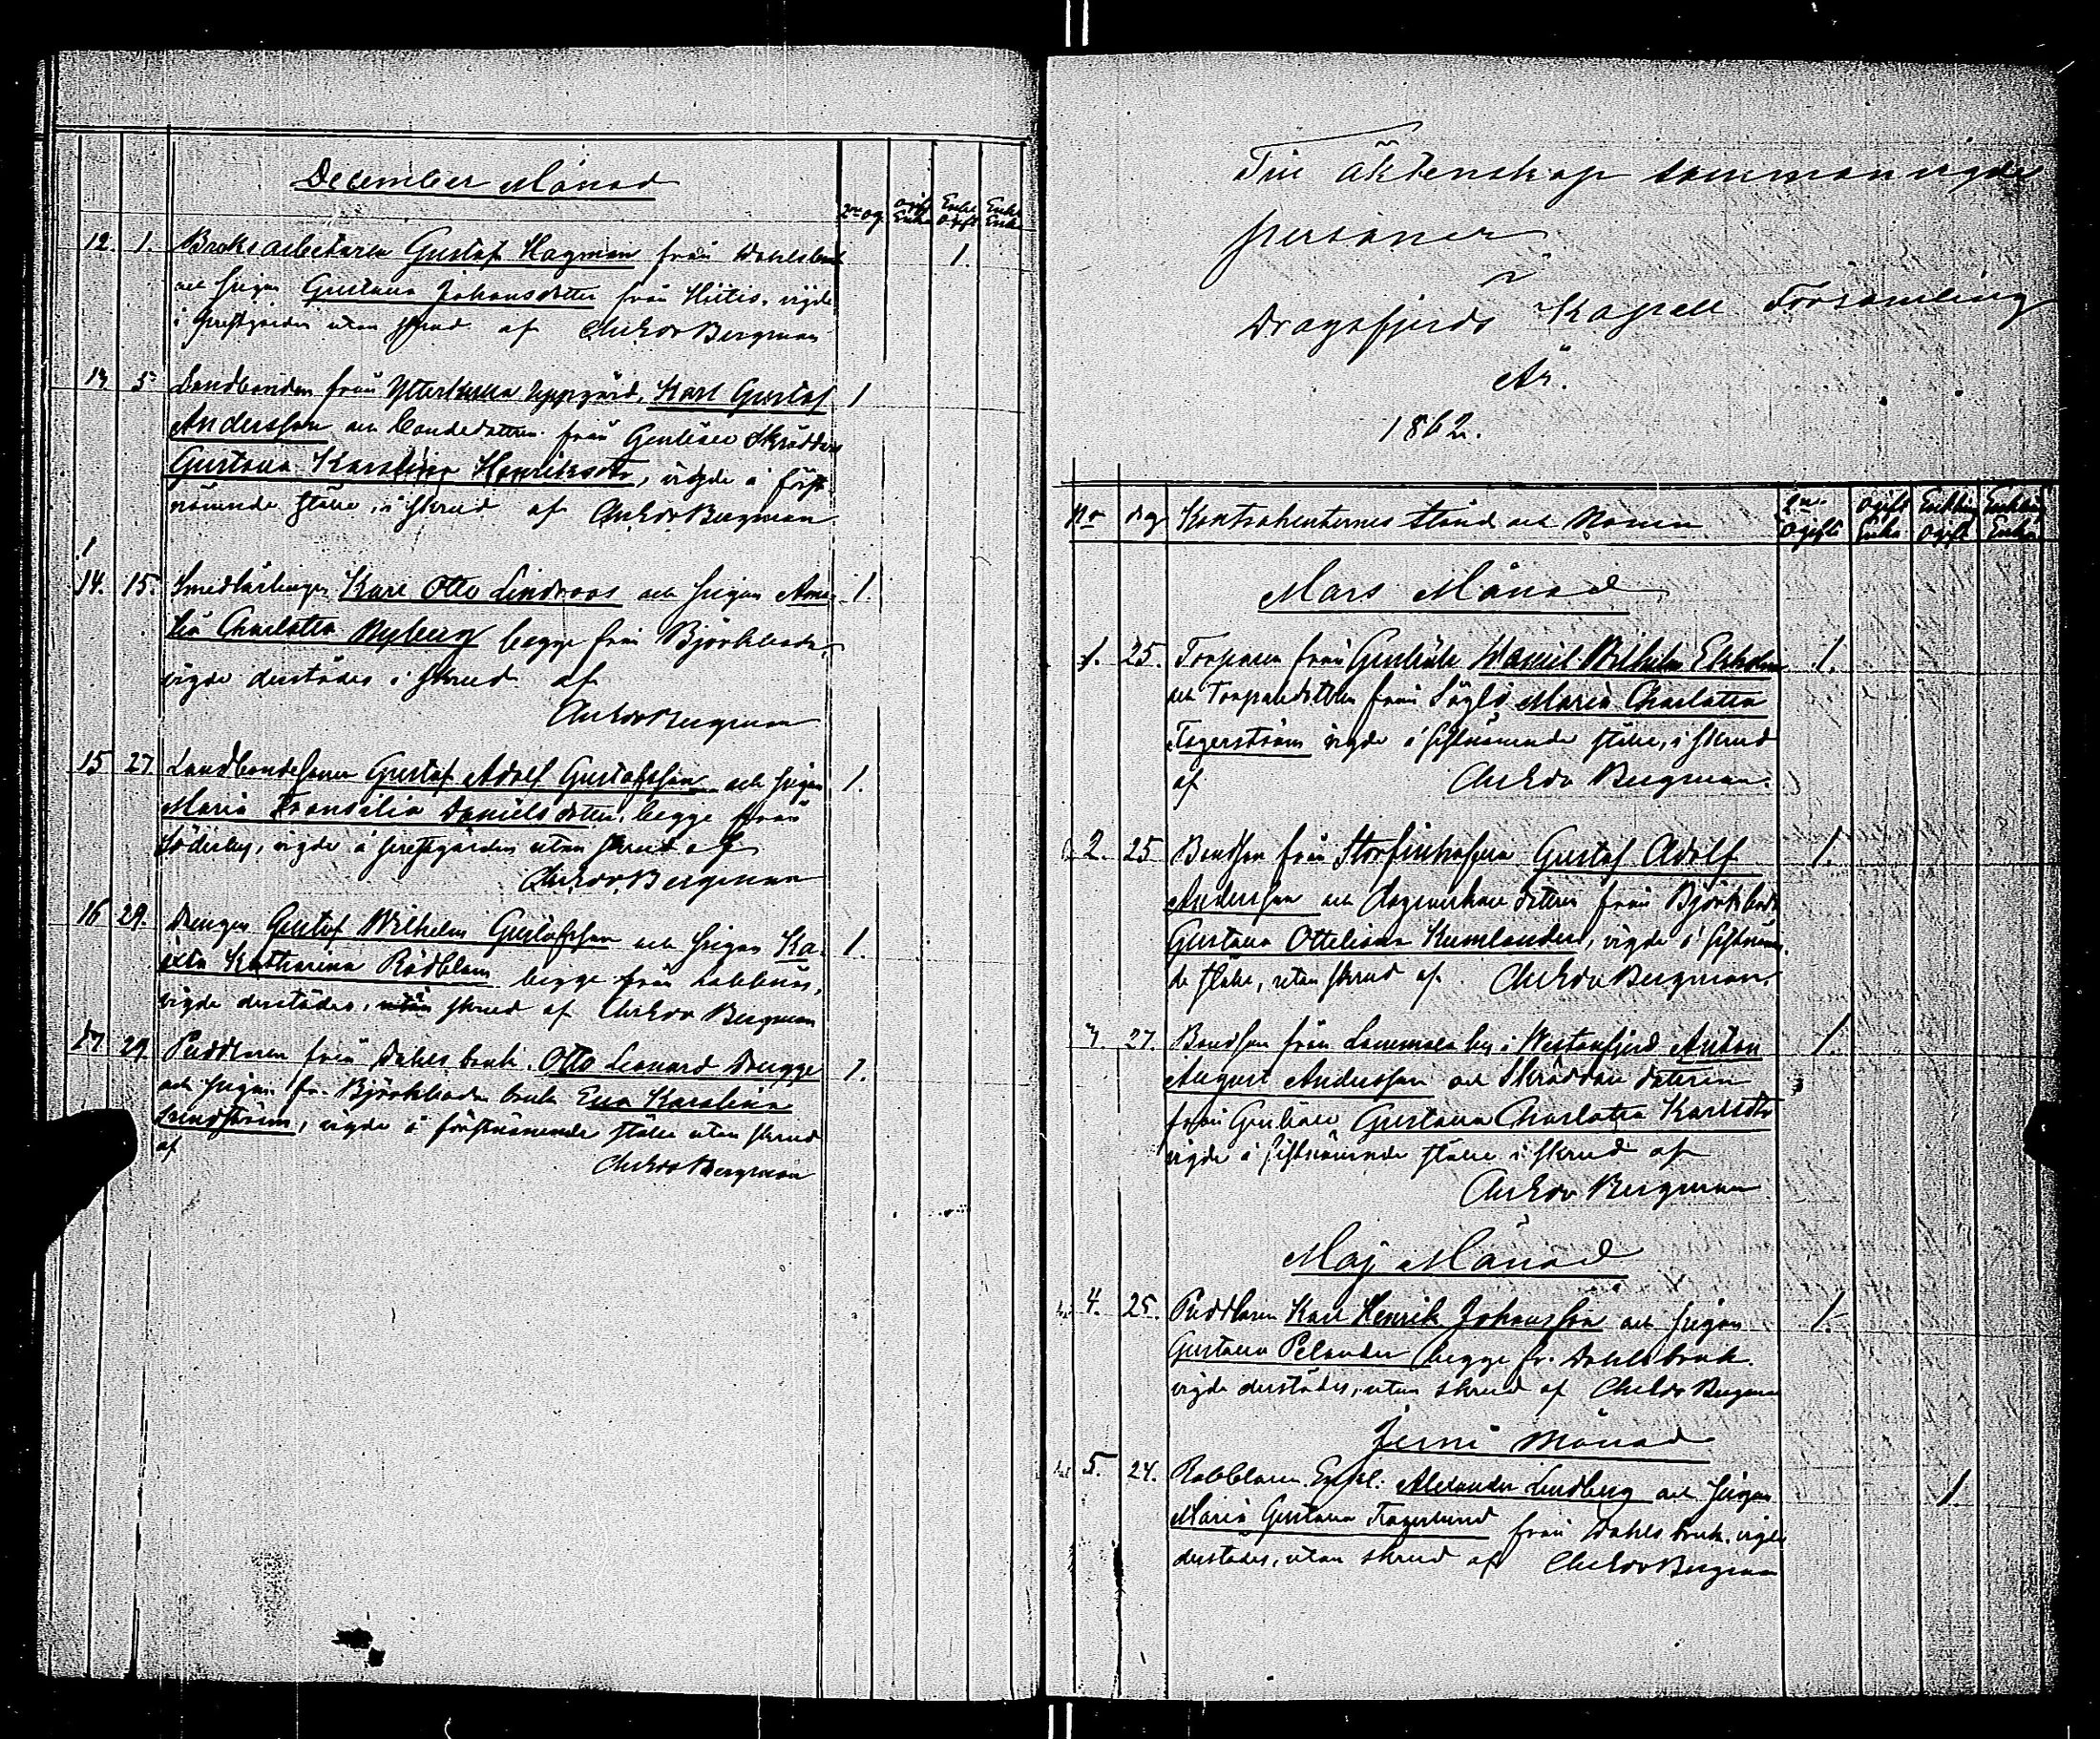 December Månad
2ne og. ogift Enka Enkl ogift Enkl Enka
12. 1. Bruksarbetaren Gustaf Hagman från Dahlsbruk 1.
och pigan Gustava Johansdotter från Hitis, vigde
i prestgården utan skrud af Chr Edv Bergman
13 5 Landbonden från Ytterkulla Uppgård, Karl Gustaf 1
Andersson och bondedottren från Genböle
Gustava Karolina Henriksdtr, vigde å först
nämnde ställe, i skrud af Chr Edv Bergman
14. 15. Smedlärlingen Karl Otto Lindroos och pigan Ama- 1.
lia Charlotta Nyberg begge från Björkboda,
vigde derstädes i skrud af
Chr Edv Bergman
15 27 Landbondesonen Gustaf Adolf Gustafsson och pigan 1.
Maria Fransilia Danielsdotter, begge från
Söderby, vigde å prestgården utan skrud af
Chr Edv Bergman
16 29. Drengen Gustaf Wilhelm Gustafsson och pigan Ka- 1.
Katharina Rödblom begge från Labbnäs,
vigde derstädes, i skrud af Chr Edv Bergman
17. 29. Puddlaren från Dahls bruk. Otto Leonard Drugge 1.
och pigan fr. Björkboda bruk Eva Karolina
Lundström, vigde å förstnämnde ställe utan skrud
af Chr Edv Bergman
Till äktenskap sammanvigde
personer
i
Dragsfjerds Kapell Församling
År.
1862.
No dag Kontrahenternes stånd och Namn 2ne ogifte ogift Enka Enkling ogift Enkling Enka
Mars Månad
1. 25. Torparen från Genböle Daniel Wilhelm Ekholm 1.
och Torparedottren från Söglö Maria Charlotta
Fagerström vigde å sistnämnde ställe, i skrud
af Chr Edv Bergman.
2. 25 Bondson från Storfinhofva Gustaf Adolf 1.
Andersson och dottren från Björkboda
Gustava Otteliana Kumlander, vigde å sistnämn-
de ställe, utan skrud af Chr Edv Bergman.
3. 27. Bondson från Lammala by i Westanfjerd Anton 1.
August Andersson och Skräddare dottren
från Genböle Gustava Charlotta Karlsdtr
vigde å sistnämnde ställe i skrud af
Chr Edv Bergman
Maj Månad
4. 25. Puddlaren Karl Henrik Johansson och pigan 1.
Gustava Pelander begge fr. Dahlsbruk.
vigde derstädes, utan skrud af Chr Edv Bergman
Juni Månad
5. 24. Enkl: Alexander Lindberg och pigan 1
Maria Gustava Fagerlund från Dahls bruk, vigde
derstades, utan skrud af Chr Edv Bergman